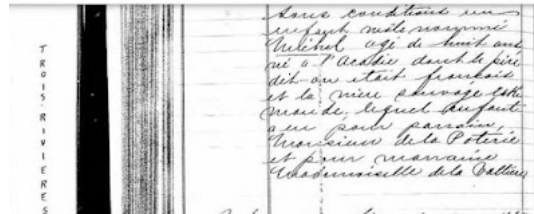 TROIS-RIVIERES
sous conditions un
enfant mâle nommé
Michel agé de huit ans
né à l'Acadie dont le père
dit-on était français
et la mère sauvage
lequel enfant
a eu pour parrain,
Monsieur de la Poterie
et pour marraine
Mademoiselle de la Vallière